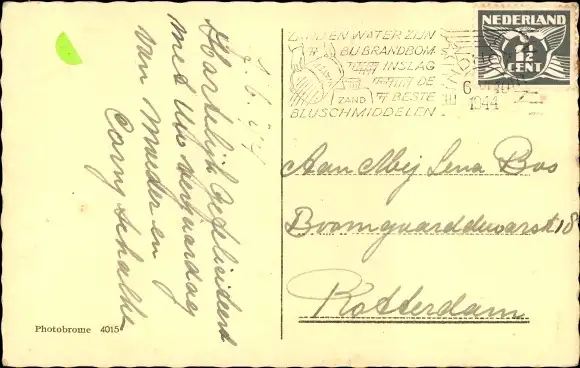 7.6.44
Hartelijk Gefeliciteerd
met Uw verjaardag
van Moeder en
Corny Schalthe
Photobrome 4015
ZAND EN WATER ZIJN
BIJ BRANDBOM
INSLAG
DE
ZAND
BESTE
BLUSCHMIDDELEN
6
1944
NEDERLAND
1½
CENT
Aan Mej Lena Bos
Boomgaarddwarsst 18
Rotterdam